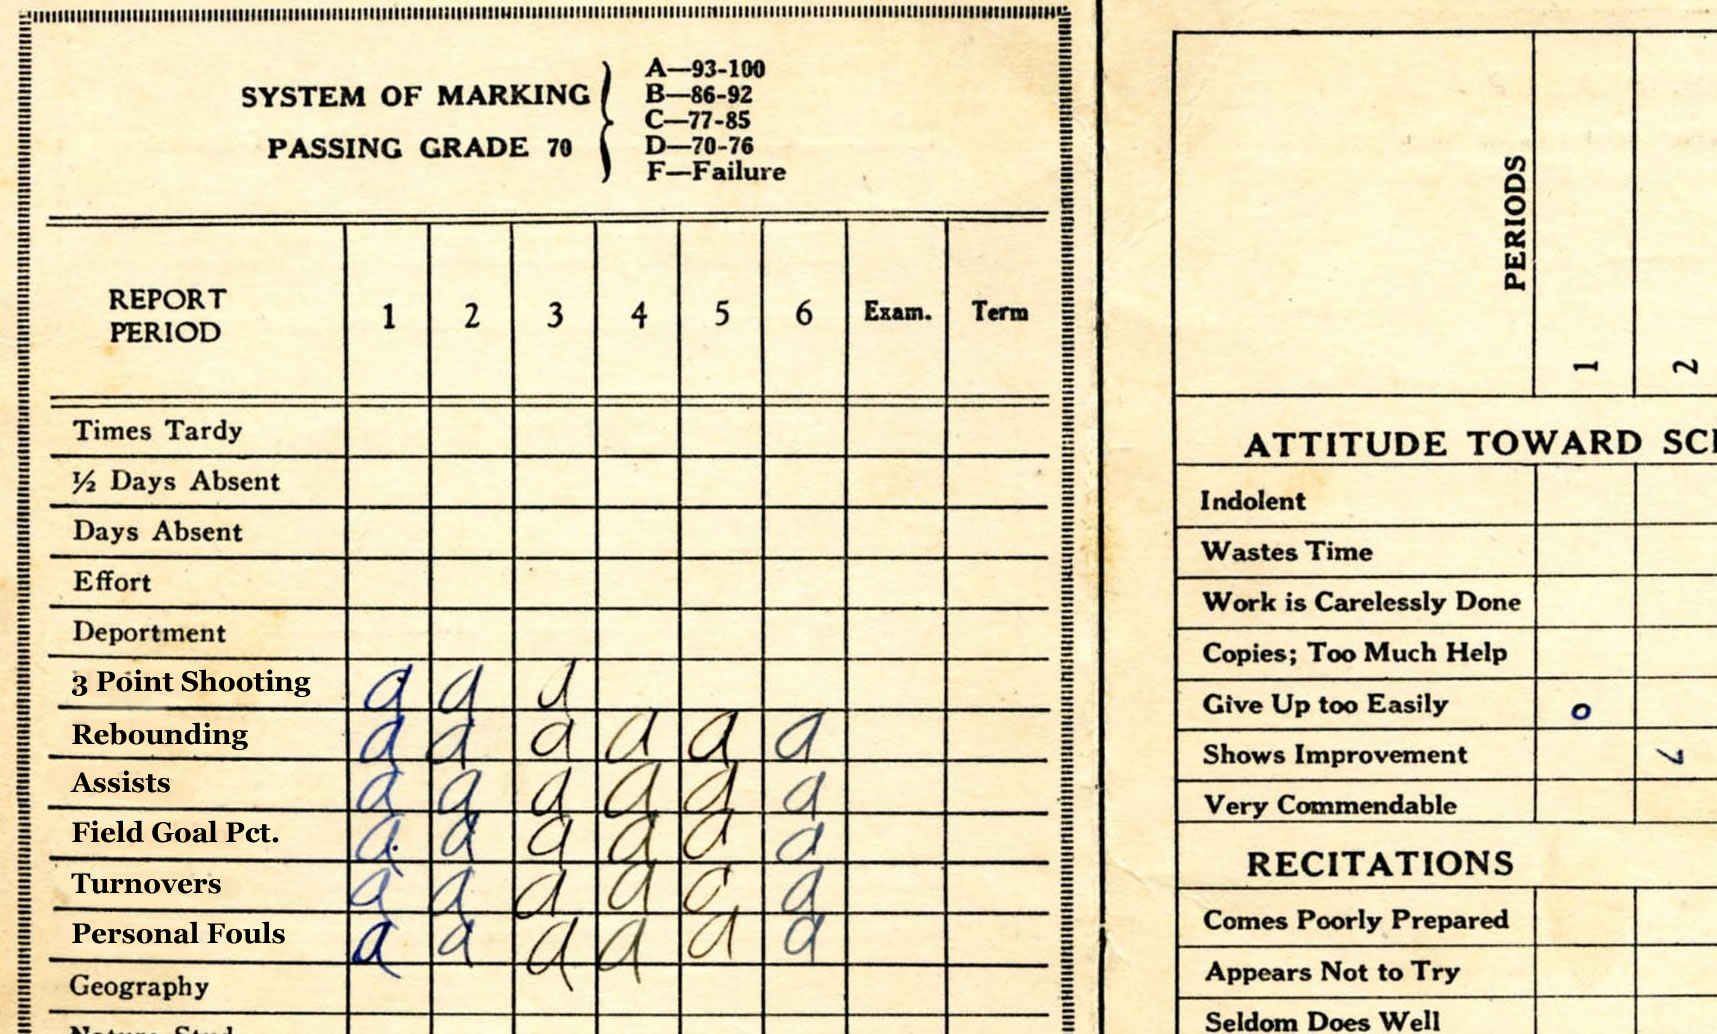 SYSTEM OF MARKING
PASSING GRADE 70
A—93-100
B—86-92
C—77-85
D—70-76
F—Failure
REPORT PERIOD 1 2 3 4 5 6 Exam. Term
Times Tardy
½ Days Absent
Days Absent
Effort
Deportment
3 Point Shooting a a a
Rebounding a a a a a a
Assists a a a a a a
Field Goal Pct. a a a a a a
Turnovers a a a a a a
Personal Fouls a a a a a a
Geography
PERIODS 1 2
ATTITUDE TOWARD
Indolent
Wastes Time
Work is Carelessly Done
Copies; Too Much Help
Give Up too Easily o
Shows Improvement
Very Commendable
RECITATIONS
Comes Poorly Prepared
Appears Not to Try
Seldom Does Well